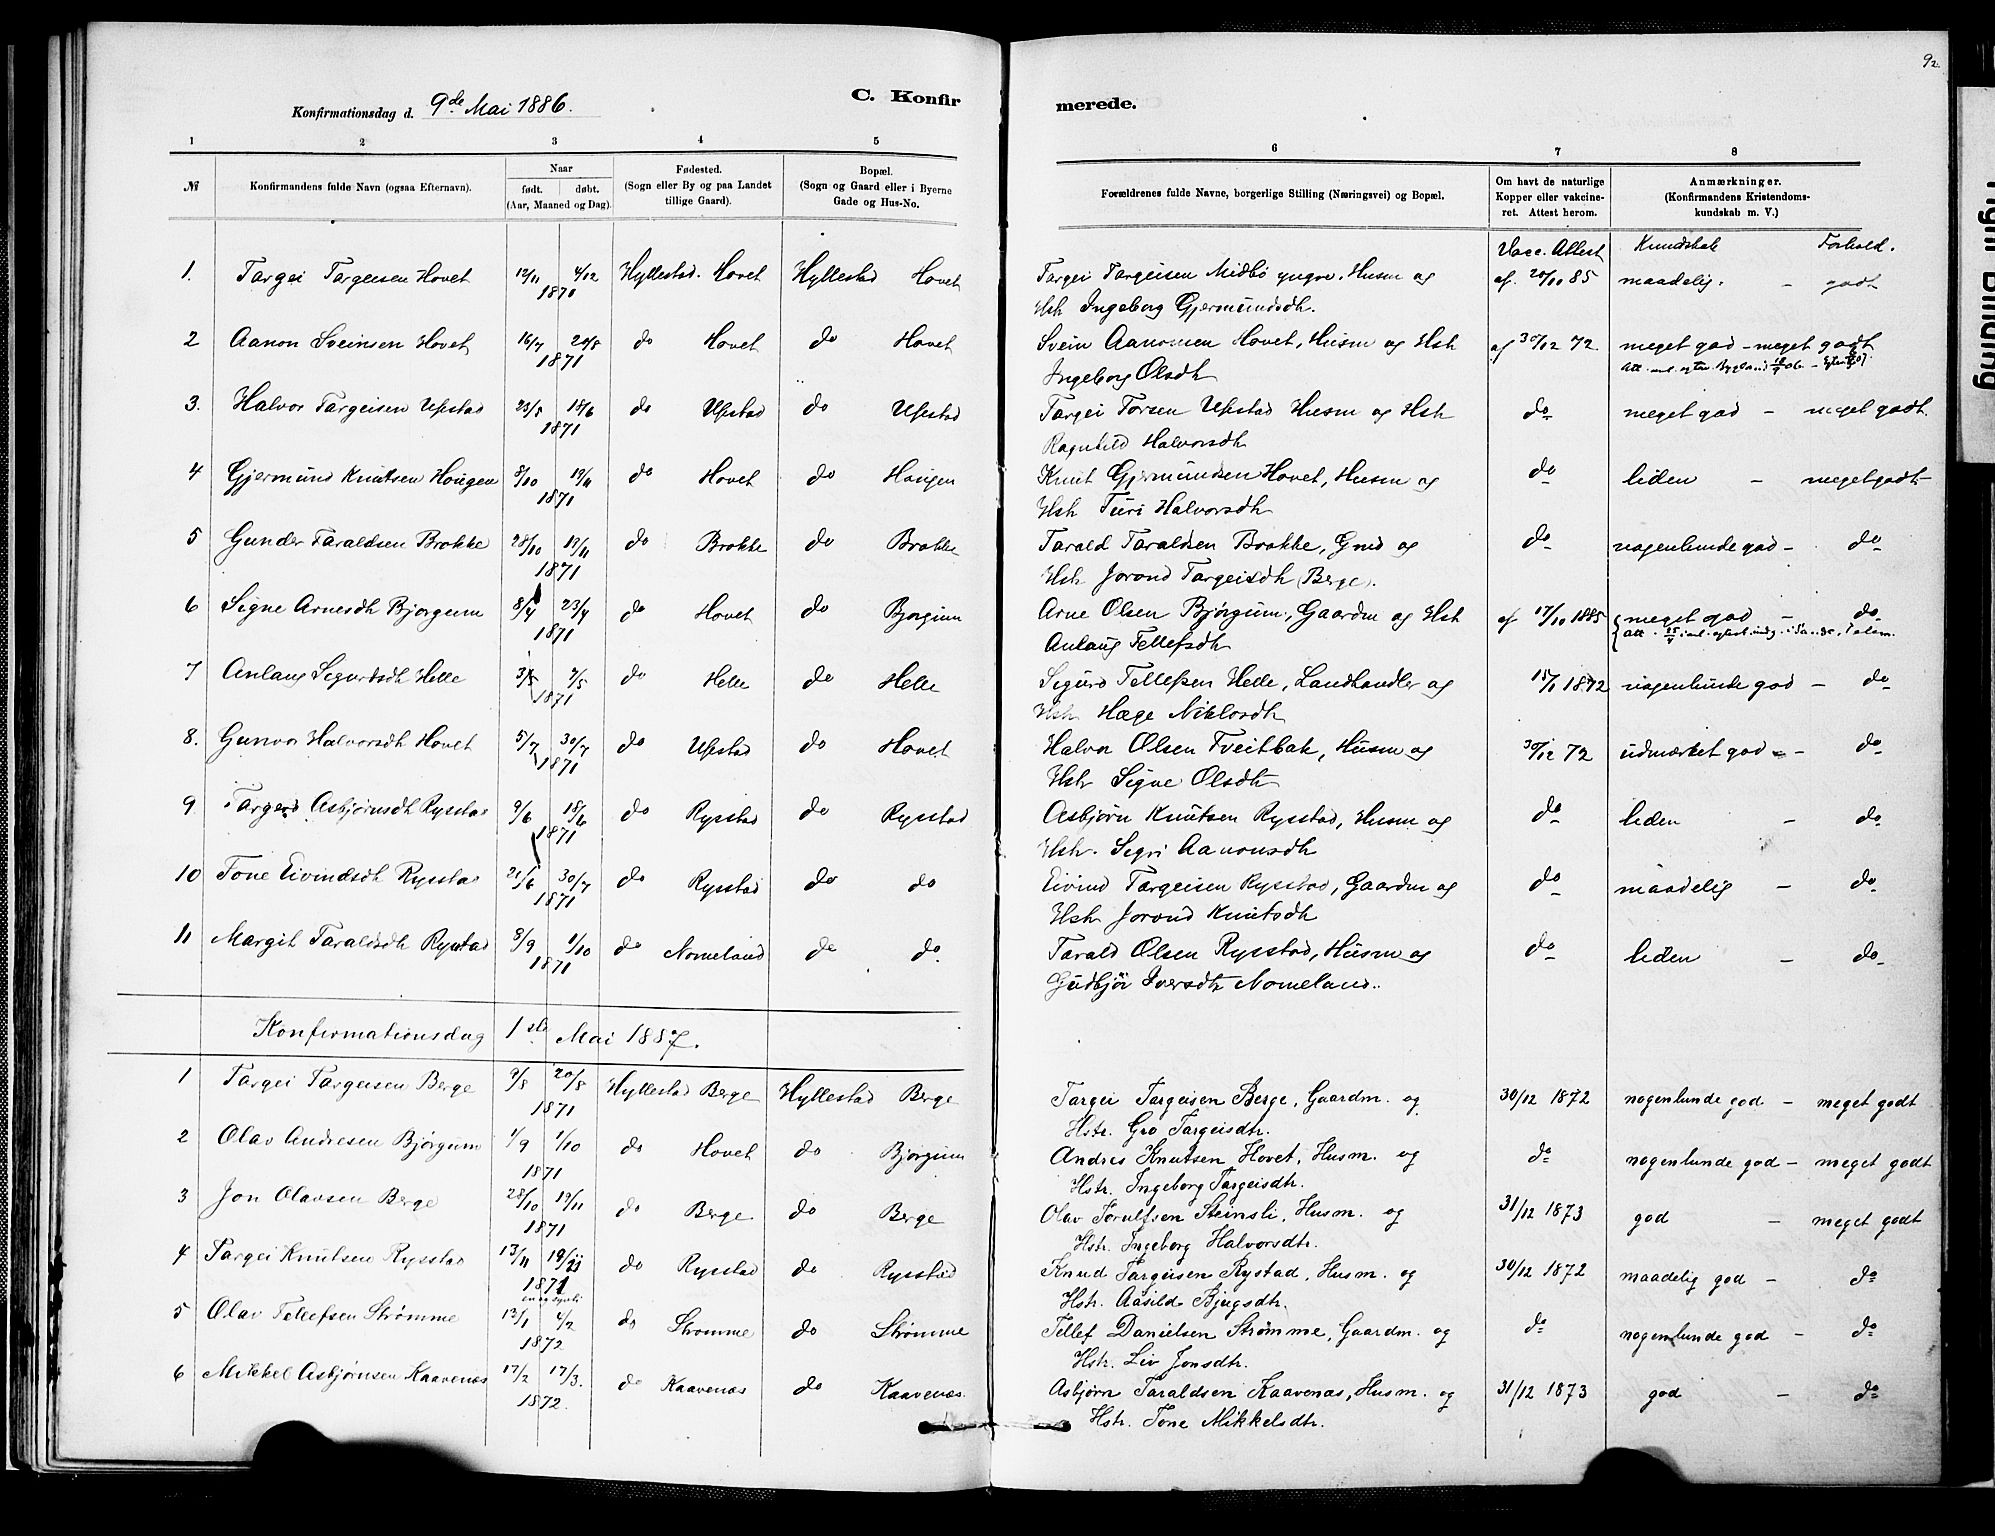 92.
Konfirmationsdag d. 9de Mai 1886.
C. Konfirmerede.
1 2 3 4 5 6 7 8
№
Konfirmandens fulde Navn (ogsaa Efternavn).
Naar
født. døbt.
(Aar, Maaned og Dag).
Fødested.
(Sogn eller By og paa Landet
tillige Gaard).
Bopæl.
(Sogn og Gaard eller i Byerne
Gade og Hus-No.
Forældrenes fulde Navne, borgerlige Stilling (Næringsvei) og Bopæl.
Om havt de naturlige
Kopper eller vakcine-
ret. Attest herom.
Anmærkninger.
(Konfirmandens Kristendoms-
kundskab m. V.)
Vacc. Attest Kundskab Forhold.
1. Targei Targeisen Hovet 12/11 4/12 1870 Hyllestad Hovet Hyllestad Hovet Targei Targeisen Midbø yngre, Husm og af 20/10 85 maadelig - godt
Hstr Ingeborg Gjermundsdtr.
2 Aanon Sveinsen Hovet 16/7 20/8 1871 do Hovet do Hovet Svein Aanonsen Hovet, Husm og Hstr af 30/12 72 meget god - meget godt
Ingeborg Olsdtr
3. Halvor Targeisen Upstad 23/5 18/6 1871 do Upstad do Upstad Targei Torsen Upstad Husm og Hstr do meget god - meget godt.
Ragnhild Halvorsdtr
4 Gjermund Knutsen Hougen 8/10 19/11 1871 do Hovet do Hougen Knut Gjermundsen Hovet, Husm og do liden - meget godt
Hstr Turi Halvorsdtr
5 Gunder Taraldsen Brokke 28/10 19/11 1871 do Brokke do Brokke Tarald Taraldsen Brokke, Gmd og do nogenlunde god - do
Hstr Jorond Targeisdtr (Berge).
6 Signe Arnesdtr Bjørgum 8/4 23/4 1871 do Hovet do Bjørgum Arne Olsen Bjørgum, Gaardm og Hstr af 17/10 1885 meget god - do
Anlaug Tellefsdtr
7 Anlaug Sigurdsdtr Helle 3/5 7/5 1871 do Helle do Helle Sigurd Tellefsen Helle, Landhandler og 15/1 1872 nogenlunde god - do
Hstr Hæge Niklosdtr
8. Gunvor Halvorsdtr Hovet 5/7 30/7 1871 do Upstad do Hovet Halvor Olsen Tveitbak, Husm og 30/12 72 udmærket god - do
Hstr Signe Olsdtr
9 Targerd Asbjørnsdtr Rysstad 9/6 18/6 1871 do Rysstad do Rysstad Asbjørn Knutsen Rysstad, Husm og do liden - do
Hstr. Sigri Aanonsdtr
10 Tone Eivindsdtr Rysstad 21/6 30/7 1871 do Rysstad do do Eivind Targeisen Rysstad, Gaardm og do maadelig - do
Hstr Jorond Knutsdtr
11 Margit Taraldsdtr Rysstad 8/9 1/10 1871 do Nomeland do do Tarald Olsen Rysstad, Husm og do liden - do
Gudbjør Iversdtr Nomeland.
Konfirmationsdag 1ste Mai 1887.
1 Targei Targeisen Berge 9/8 20/8 1871 Hyllestad Berge Hyllestad Berge Targei Targeisen Berge, Gaardm. og 30/12 1872 nogenlunde god - meget godt
Hstr. Gro Targeisdtr.
2 Olav Andresen Bjørgum 1/9 1/10 1871 do Hovet do Bjørgum Andres Knutsen Hovet, Husm. og do nogenlunde god - meget godt
Hstr. Ingeborg Targeisdtr.
3 Jon Olavsen Berge 28/10 19/11 1871 do Berge do Berge Olav Torulfsen Steinsli, Husm. og 31/12 1873 god - meget godt
Hstr. Ingeborg Halvorsdtr.
4 Targei Knutsen Rysstad 13/11 19/11 1871 do Rysstad do Rysstad Knud Targeisen Rystad, Husm. og 30/12 1872 maadelig god - do
Hstr. Aasild Bjugsdtr.
5 Olav Tellefsen Strømme 13/1 4/2 1872 do Strømme do Strømme Tellef Danielsen Strømme, Gaardm. og do nogenlunde god - do
Hstr. Liv Jonsdtr.
6 Mikkel Asbjørnsen Kaavenæs 17/2 17/3. 1872. do Kaavenæs do Kaavenæs. Asbjørn Taraldsen Kaavenæs, Husm. og 31/12 1873 god - do
Hstr. Tone Mikkelsdtr.